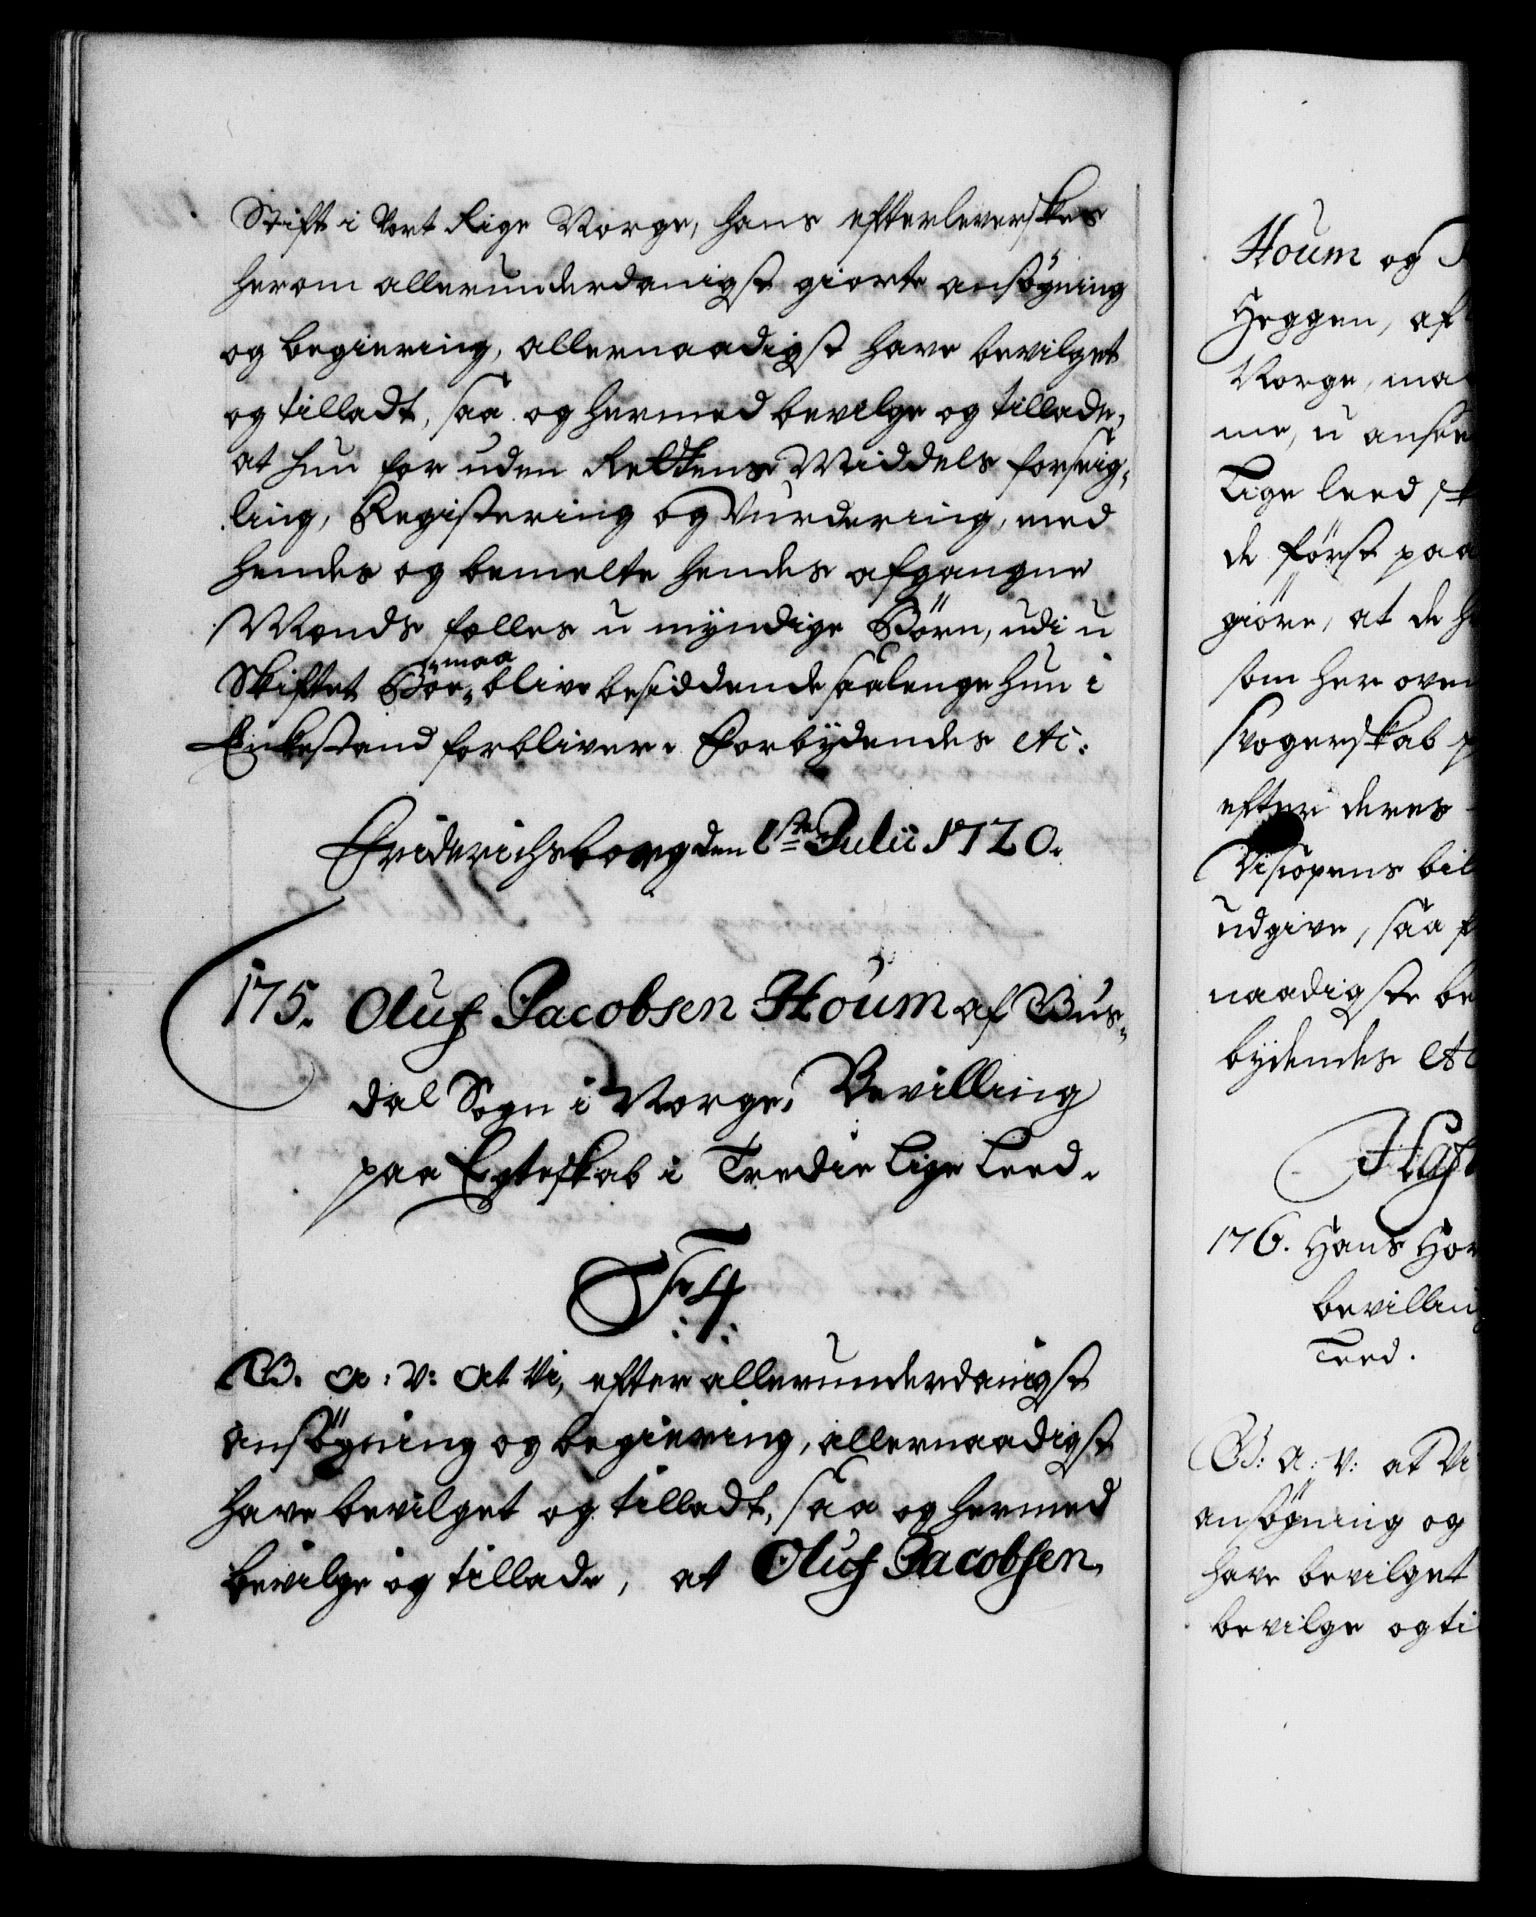 Stift i Vort Rige Norge, hans efterleverskes
herom allerunderdanigst giorte ansøgning
og begiering, allernaadigst have bevilget
og tilladt, saa og hermed bevilge og tillade,
at hun for uden Rettens Middels forseig-
ling, Registering og Vurdering, med
hendes og bemelte hendes afgangne
Mands fælles u myndige Börn, udi u
Skiftet Boe, maa blive besiddende saalenge hun i
Enkestand forbliver. Forbydendes etc:
Friderichsborg den 1ste Julii 1720.
175. Oluf Jacobsen Houm af Bus-
dal Sogn i Norge, Bevilling
paa Egteskab i Tredie Lige Leed.
F 4
G. a: v: at Vi, efter allerunderdanigst
ansøgning og begiering, allernaadigst
have bevilget og tilladt, saa og hermed
bevilge og tillade, at Oluf Jacobsen
Houm og
Heggen, af
Norge, ma
me, u anseet
Lige leed sk
de först paa
giöre, at de h
som her oven
svogerskab
efter deres
Biscopens bil
udgive, saa f
naadigste be
bydendes etc
Haf
176. Hans Hor
bevilling
Leed.
G: a: v: at Vi
ansøgning og
have bevilget
bevilge og ti